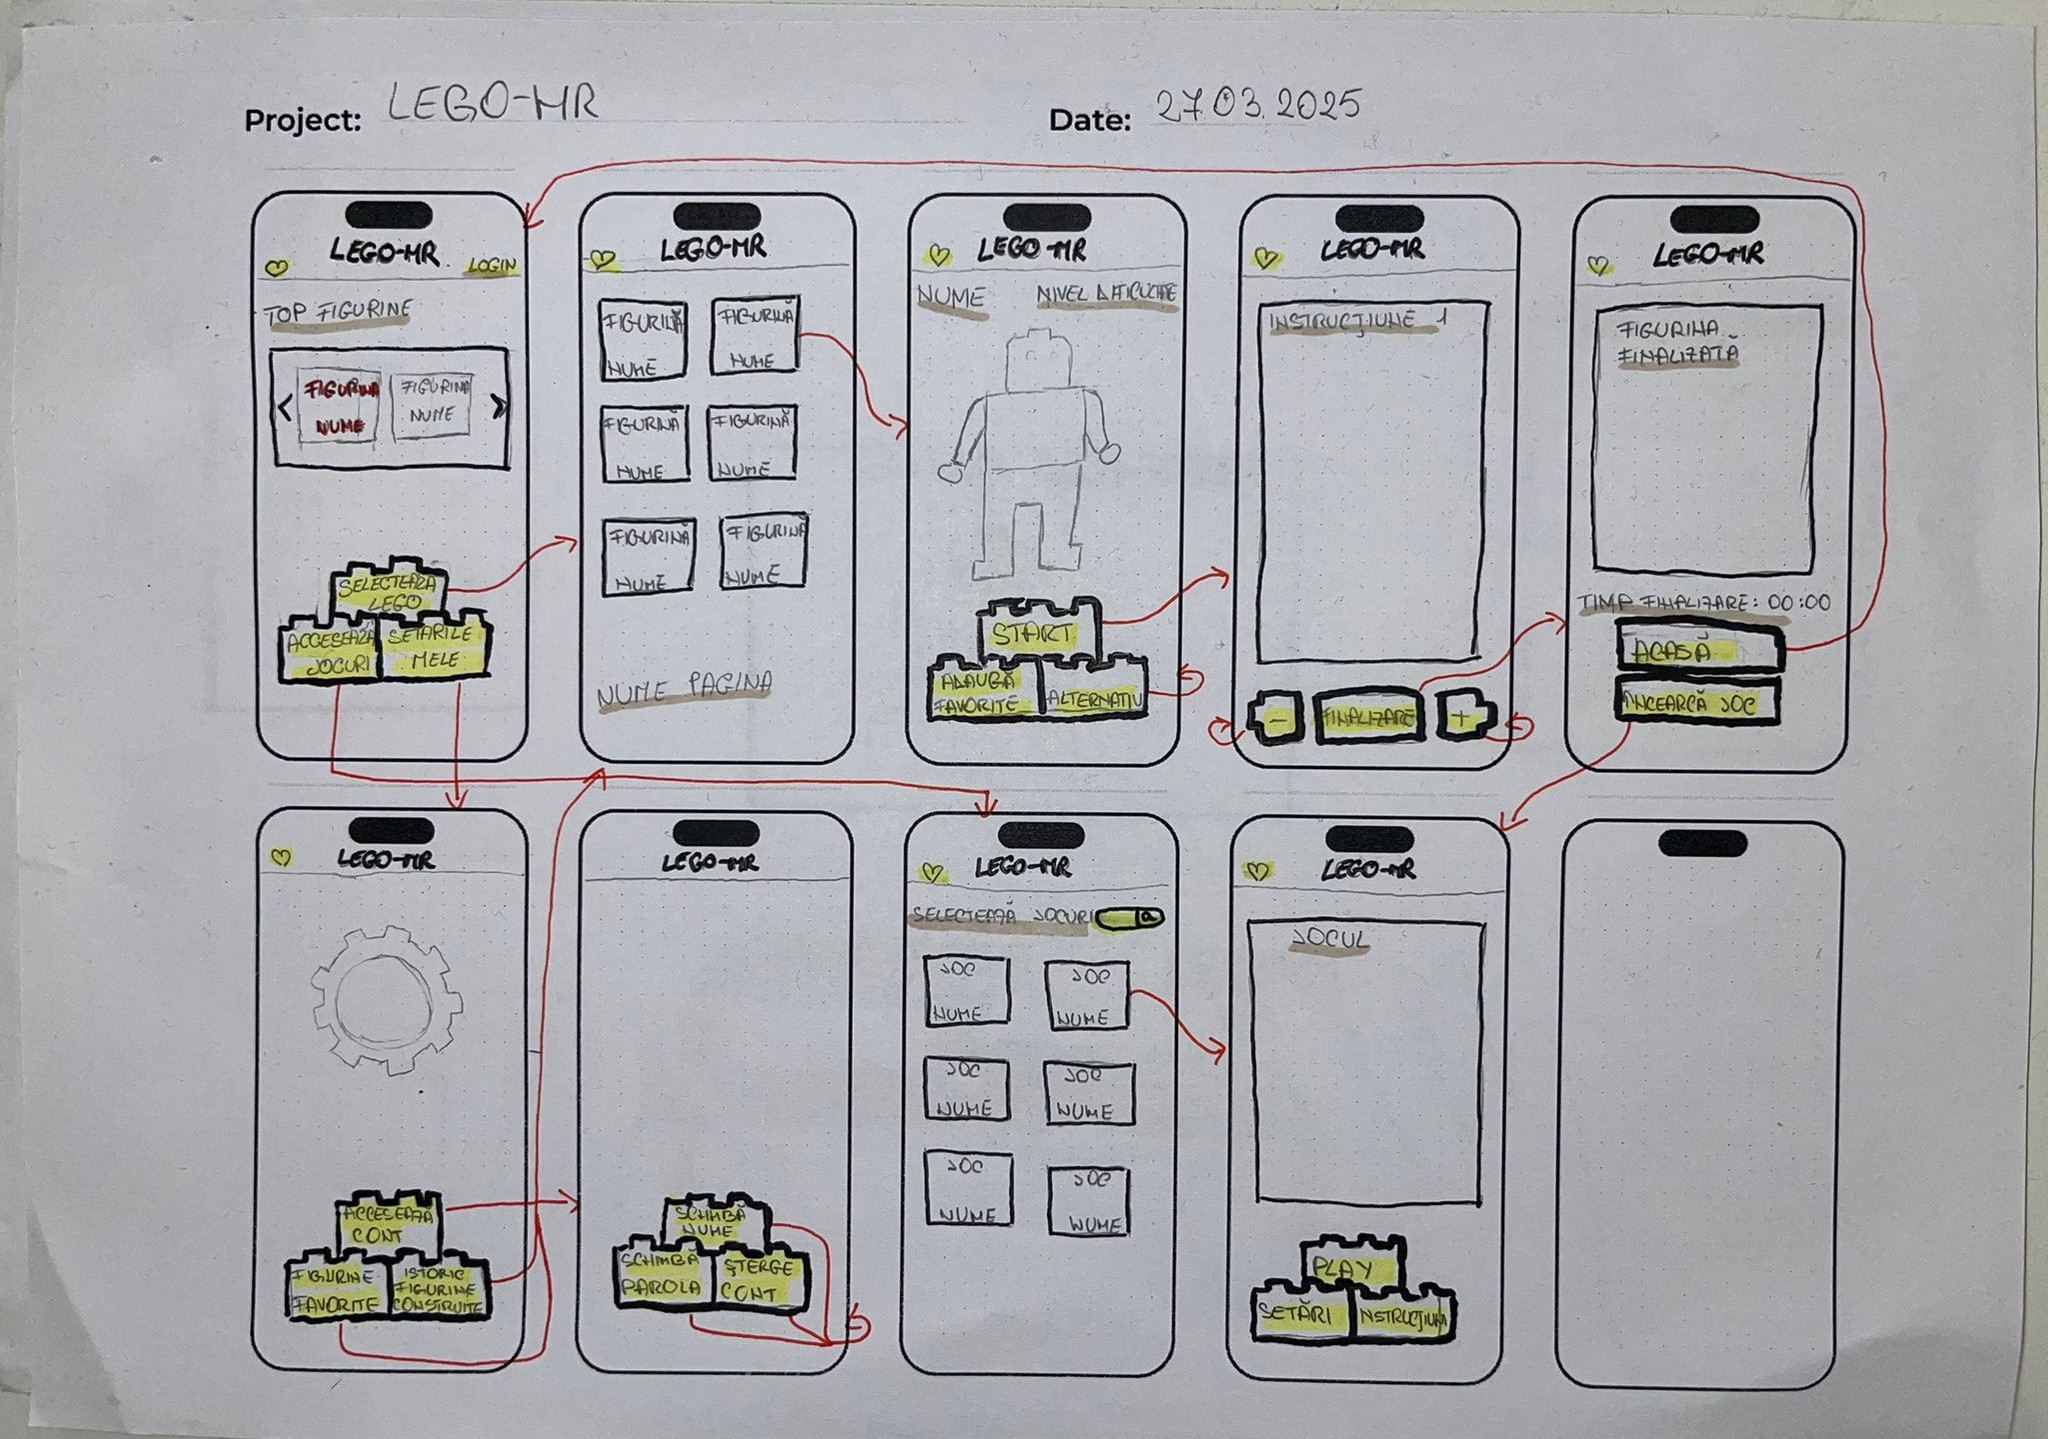 Project: LEGO-MR
Date: 27.03.2025
LEGO-MR
LOGIN
TOP FIGURINE
<
FIGURINA
NUME
FIGURINA
NUME
>
SELECTEAZA
LEGO
ACCESEAZĂ
JOCURI
SETARILE
MELE
LEGO-MR
FIGURINĂ
NUME
FIGURINĂ
NUME
FIGURINĂ
NUME
FIGURINĂ
NUME
FIGURINĂ
NUME
FIGURINĂ
NUME
NUME PAGINA
LEGO-MR
NUME
NIVEL DIFICULTATE
START
ADAUGĂ
FAVORITE
ALTERNATIV
LEGO-MR
INSTRUCȚIUNE 1
-
FINALIZARE
+
LEGO-MR
FIGURINA
FINALIZATĂ
TIMP FINALIZARE: 00:00
ACASĂ
ÎNCEARCĂ JOC
LEGO-MR
ACCESEAZĂ
CONT
FIGURINE
FAVORITE
ISTORIC
FIGURINE
CONSTRUITE
LEGO-MR
SCHIMBĂ
NUME
SCHIMBĂ
PAROLA
ȘTERGE
CONT
LEGO-MR
SELECTEAZĂ JOCURI
JOC
NUME
JOC
NUME
JOC
NUME
JOC
NUME
JOC
NUME
JOC
NUME
LEGO-MR
JOCUL
PLAY
SETĂRI
INSTRUCȚIUNI